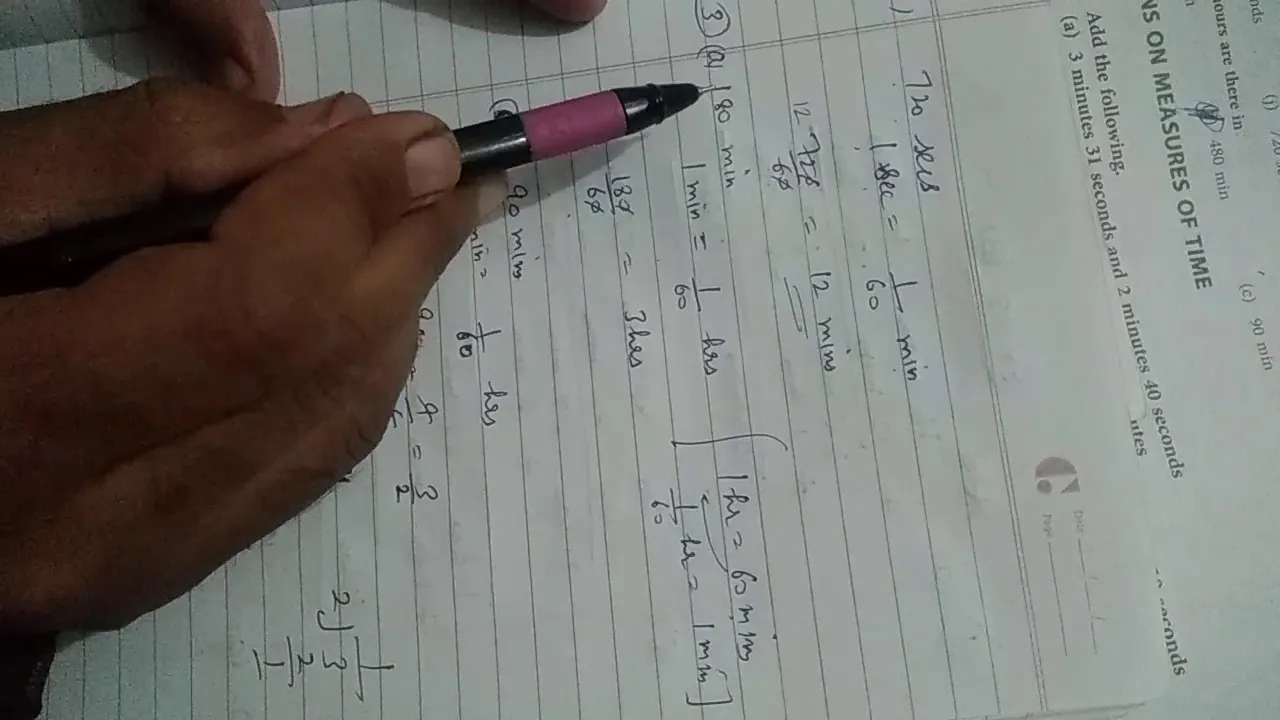 (j) 720
hours are there in
480 min
(c) 90 min
NS ON MEASURES OF TIME
Add the following.
(a) 3 minutes 31 seconds and 2 minutes 40 seconds
Date
Page
720 secs
1 sec = 1/60 min
12 720/60 = 12 mins
3) (a) 180 min
1 min = 1/60 hrs
[1 hr = 60 mins
1/60 hr = 1 min]
180/60 = 3 hrs
90 mins
min = 1/60 hrs
= 3/2
2) 3
2
1
1